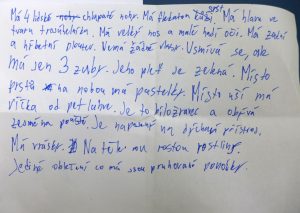 Má 4 lidské nohy chlupaté nohy. Má
Má hlavu ve
tvaru trojúhelníku. Má velký nos a malé hadí oči. Má zadní
a hřbetní ploutev. Nemá žádné vlasy. Usmívá se, ale
má jen 3 zuby. Jeho pleť je zelená. Místo
prstů na nohou má pastelky. Místo uší má
víčka od pet lahve. Je to býložravec a obývá
zejména pouště. Je napojený na dýchací přístroj.
Má vrásky. Na těle mu rostou rostliny.
Jediné oblečení co má jsou pruhované ponožky.